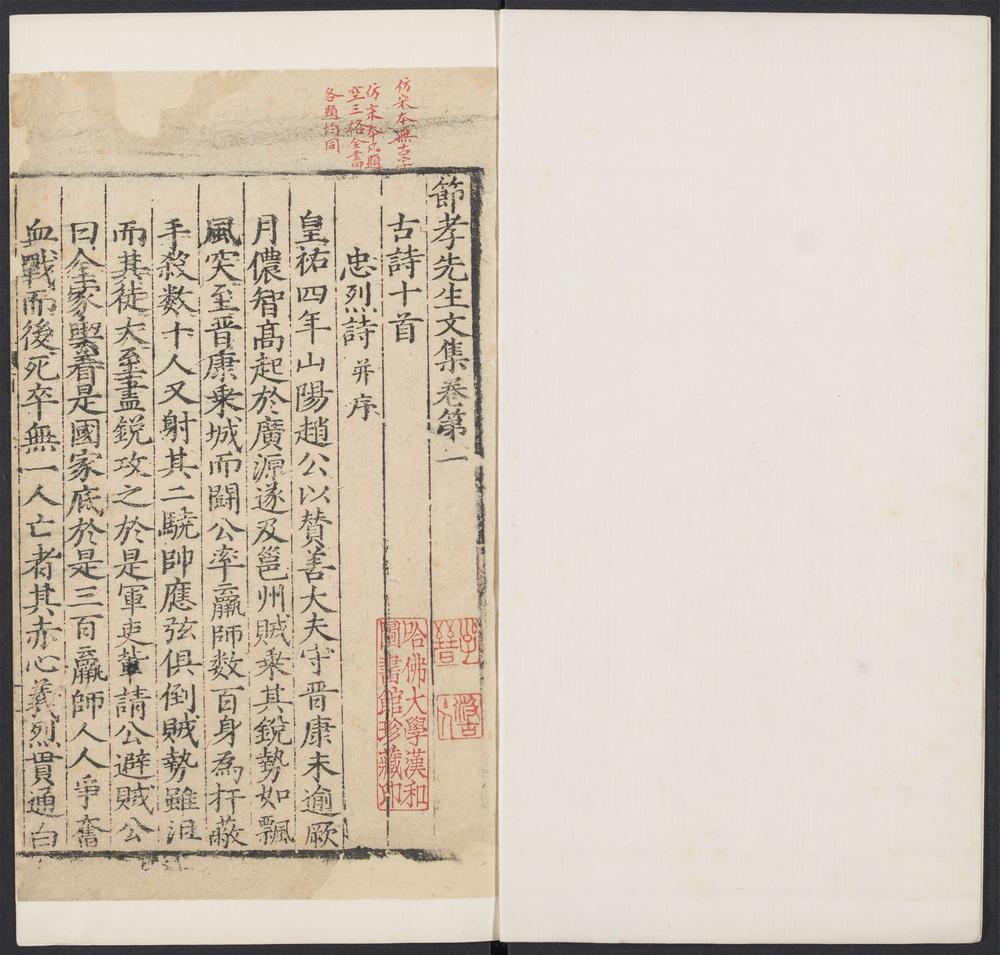 仿宋本無古字
仿宋本凡題
空三格全書
各題均同
節孝先生文集卷第一
古詩十首
忠烈詩并序
皇祐四年山陽趙公以贊善大夫守晋康未逾厥
月儂智高起於廣源遂及邕州賊乗其銳勢如飄
風突至晋康乗城而鬪公率羸師数百身為扞蔽
手殺数十人又射其二驍帥應弦俱倒賊勢雖沮
而其徒大至盡銳攻之於是軍吏輩請公避賊公
曰全家與着是國家底於是三百羸師人人爭奮
血戰而後死卒無一人亡者其赤心義烈貫通白
哈佛大學漢和
圖書館珍藏印